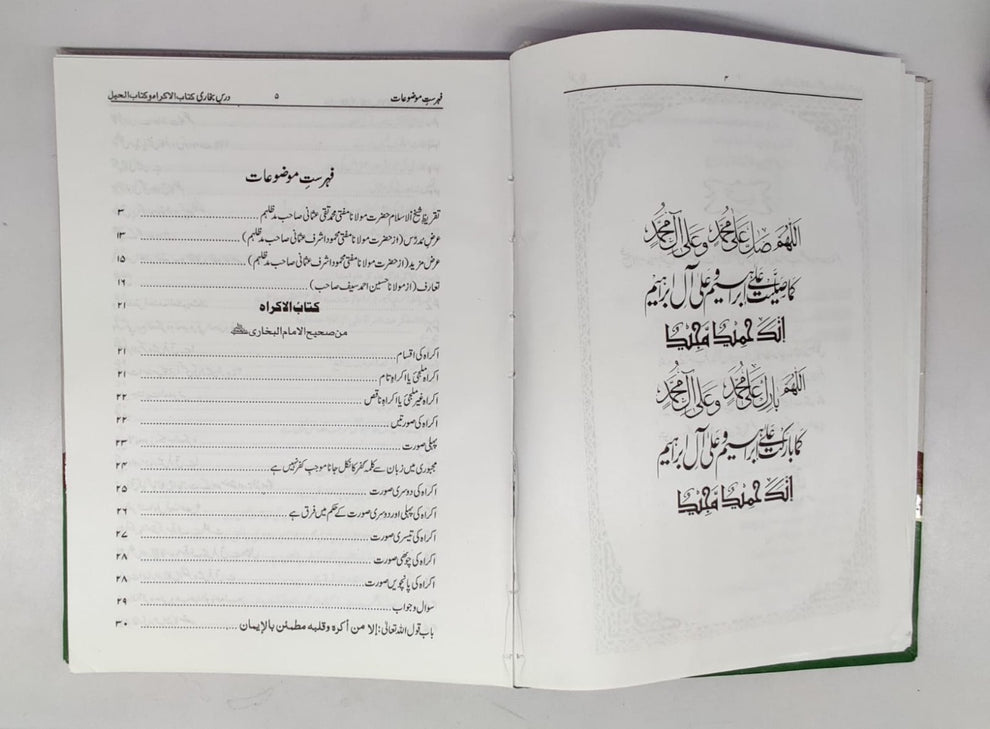 ۴
اللهم صل على محمد وعلى آل محمد
كما صليت على إبراهيم وعلى آل إبراهيم
إنك حميد مجيد
اللهم بارك على محمد وعلى آل محمد
كما باركت على إبراهيم وعلى آل إبراهيم
إنك حميد مجيد
فہرست موضوعات ۵ درس بخاری کتاب الاکراہ و کتاب الحیل
فہرستِ موضوعات
تقریظ شیخ الاسلام حضرت مولانا مفتی محمد تقی عثمانی صاحب مدظلہم ........ ۳
عرض مدرّس (از حضرت مولانا مفتی محمود اشرف عثمانی صاحب مدظلہم) ........ ۱۳
عرض مزید (از حضرت مولانا مفتی محمود اشرف عثمانی صاحب مدظلہم) ........ ۱۵
تعارف (از مولانا حسین احمد سیف صاحب) ........ ۱۶
کتابُ الاکراہ ۲۱
من صحیح الامام البخاری ﷫
اکراہ کی اقسام ........ ۲۱
اکراہ ملجئ یا اکراہِ تام ........ ۲۱
اکراہ غیر ملجئ یا اکراہِ ناقص ........ ۲۲
اکراہ کی صورتیں ........ ۲۲
پہلی صورت ........ ۲۳
مجبوری میں زبان سے کلمہ کفر کا نکل جانا موجب کفر نہیں ہے ........ ۲۴
اکراہ کی دوسری صورت ........ ۲۵
اکراہ کی پہلی اور دوسری صورت کے حکم میں فرق ہے ........ ۲۶
اکراہ کی تیسری صورت ........ ۲۷
اکراہ کی چوتھی صورت ........ ۲۸
اکراہ کی پانچویں صورت ........ ۲۸
سوال و جواب ........ ۲۹
باب قول اللہ تعالیٰ: إلا من أكره وقلبه مطمئن بالإيمان ........ ۳۰